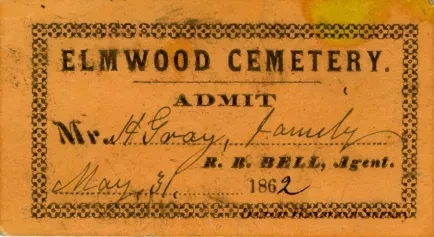 ELMWOOD CEMETERY.
ADMIT
Mr. H Gray, Family
R. R. BELL, Agent.
May, 31, 1862